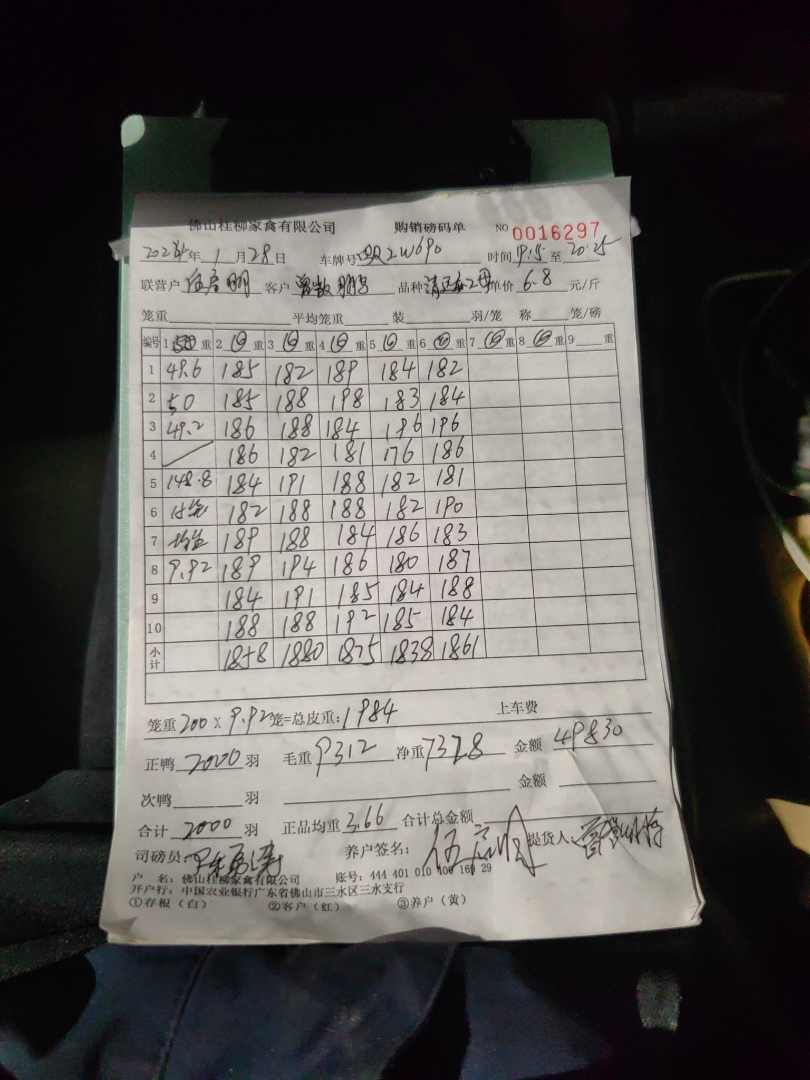 佛山桂柳家禽有限公司 购销磅码单 NO 0016297
2024年 1 月 28 日 车牌号 2W690 时间 19.15 至 20.25
联营户 明 客户 曾 品种 单价 6.8 元/斤
笼重 平均笼重 装 羽/笼 称 笼/磅
编号 1 重 2 重 3 重 4 重 5 重 6 重 7 重 8 重 9 重
1 49.6 185 182 189 184 182
2 50 185 188 198 183 184
3 49.2 186 188 184 196 196
4 186 182 181 176 186
5 148.8 184 191 188 182 181
6 15笼 182 188 188 182 190
7 均重 189 188 184 186 183
8 9.92 189 194 186 180 187
9 184 191 185 184 188
10 188 188 192 185 184
小计 1858 1880 1875 1838 1861
笼重 200 X 9.92 笼=总皮重: 1984 上车费
正鸭 2000 羽 毛重 9312 净重 7328 金额 49830
次鸭 羽 金额
合计 2000 羽 正品均重 3.66 合计总金额
司磅员: 养户签名: 伍 提货人: 曾
户 名: 佛山桂柳家禽有限公司 账号: 444 401 010 400 169 29
开户行: 中国农业银行广东省佛山市三水区三水支行
①存根（白） ②客户（红） ③养户（黄）